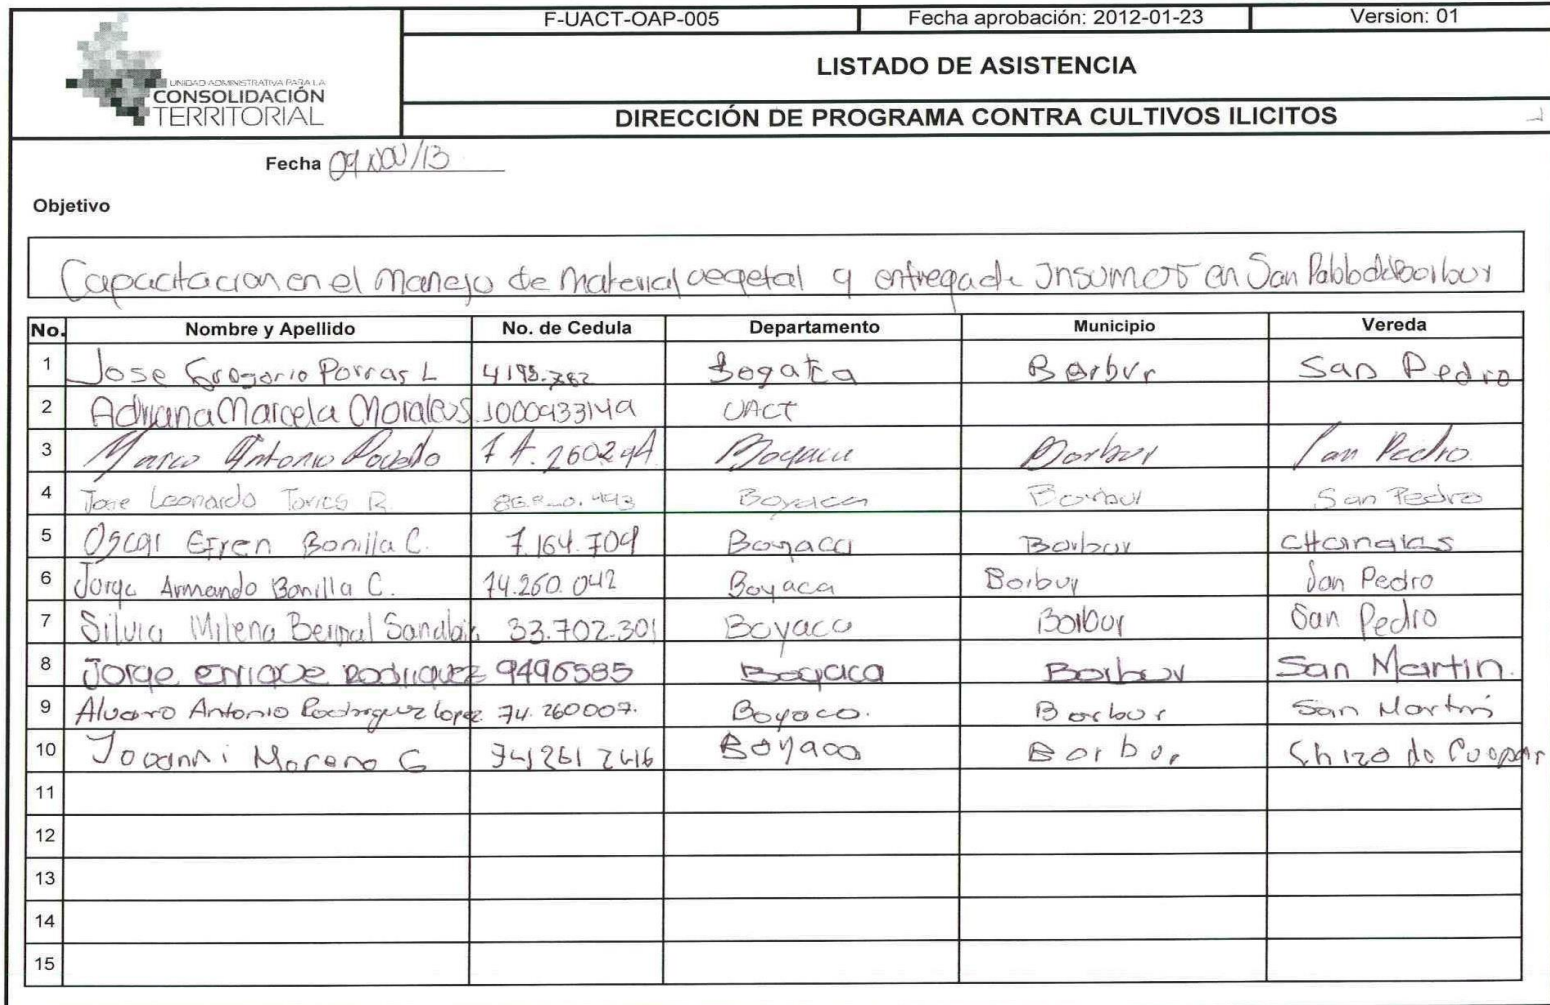 F-UACT-OAP-005 Fecha aprobación: 2012-01-23 Version: 01
UNIDAD ADMINISTRATIVA PARA LA
CONSOLIDACIÓN
TERRITORIAL
LISTADO DE ASISTENCIA
DIRECCIÓN DE PROGRAMA CONTRA CULTIVOS ILICITOS
Fecha 09 NOV/13
Objetivo
Capacitacion en el manejo de material vegetal y entrega de Insumos en San Pablo de Borbur
No. Nombre y Apellido No. de Cedula Departamento Municipio Vereda
1 Jose Gregorio Porras L 4198.782 Borbur San Pedro
2 Adriana Marcela Morales S. 1000933149 UACT
3 Marco Antonio 74.260294 Boyaca Borbur San Pedro
4 Jose Leonardo Torres R. Boyaca Borbur San Pedro
5 Oscar Efren Bonilla C. 7.164.709 Boyaca Borbur
6 Jorge Armando Bonilla C. 74.260.042 Boyaca Borbur San Pedro
7 Silvia Milena Bernal Sanabria 33.702.301 Boyaca Borbur San Pedro
8 Jorge Enrique Rodriguez 9496585 Boyaca Borbur San Martin.
9 Alvaro Antonio Rodriguez Lopez 74.260007. Boyaco. Borbur San Martin
10 Joanni Moreno G Boyaca Borbur
11
12
13
14
15